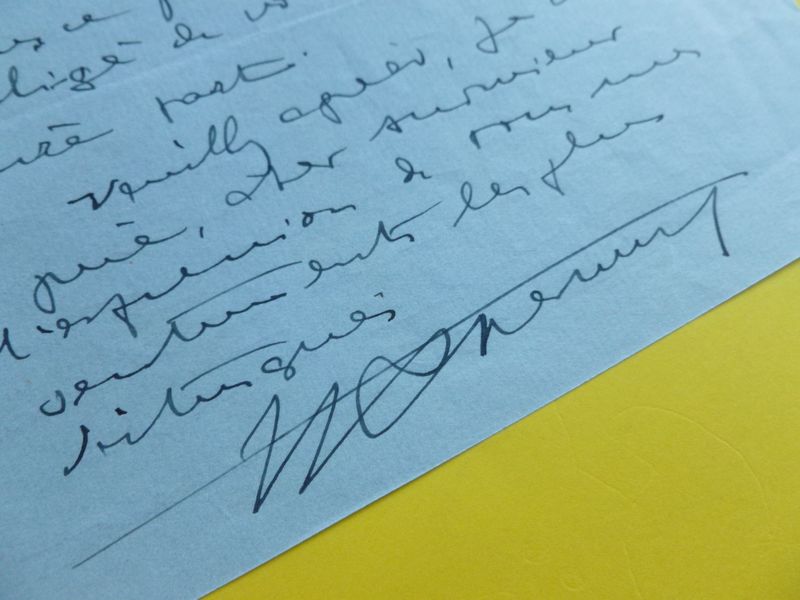 de
part.
Veuillez agréer, je
prie, cher monsieur
l'expression de tous mes
sentiments les plus
distingués